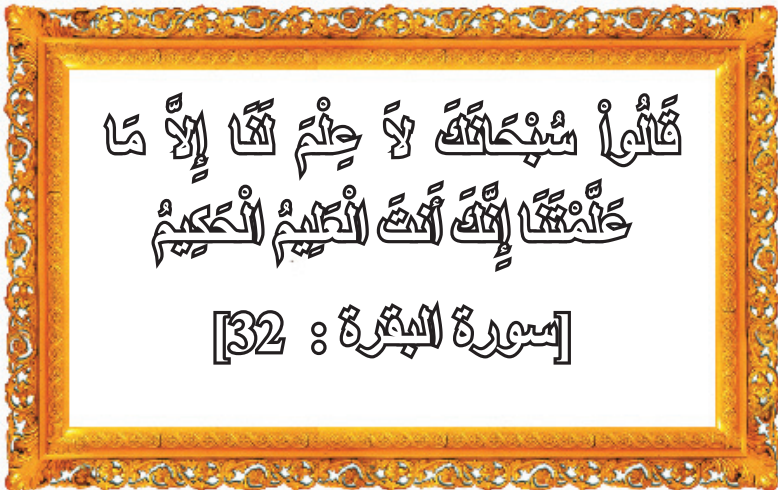 قَالُواْ سُبْحَانَكَ لاَ عِلْمَ لَنَا إِلاَّ مَا
عَلَّمْتَنَا إِنَّكَ أَنتَ الْعَلِيمُ الْحَكِيمُ
[سورة البقرة : 32]